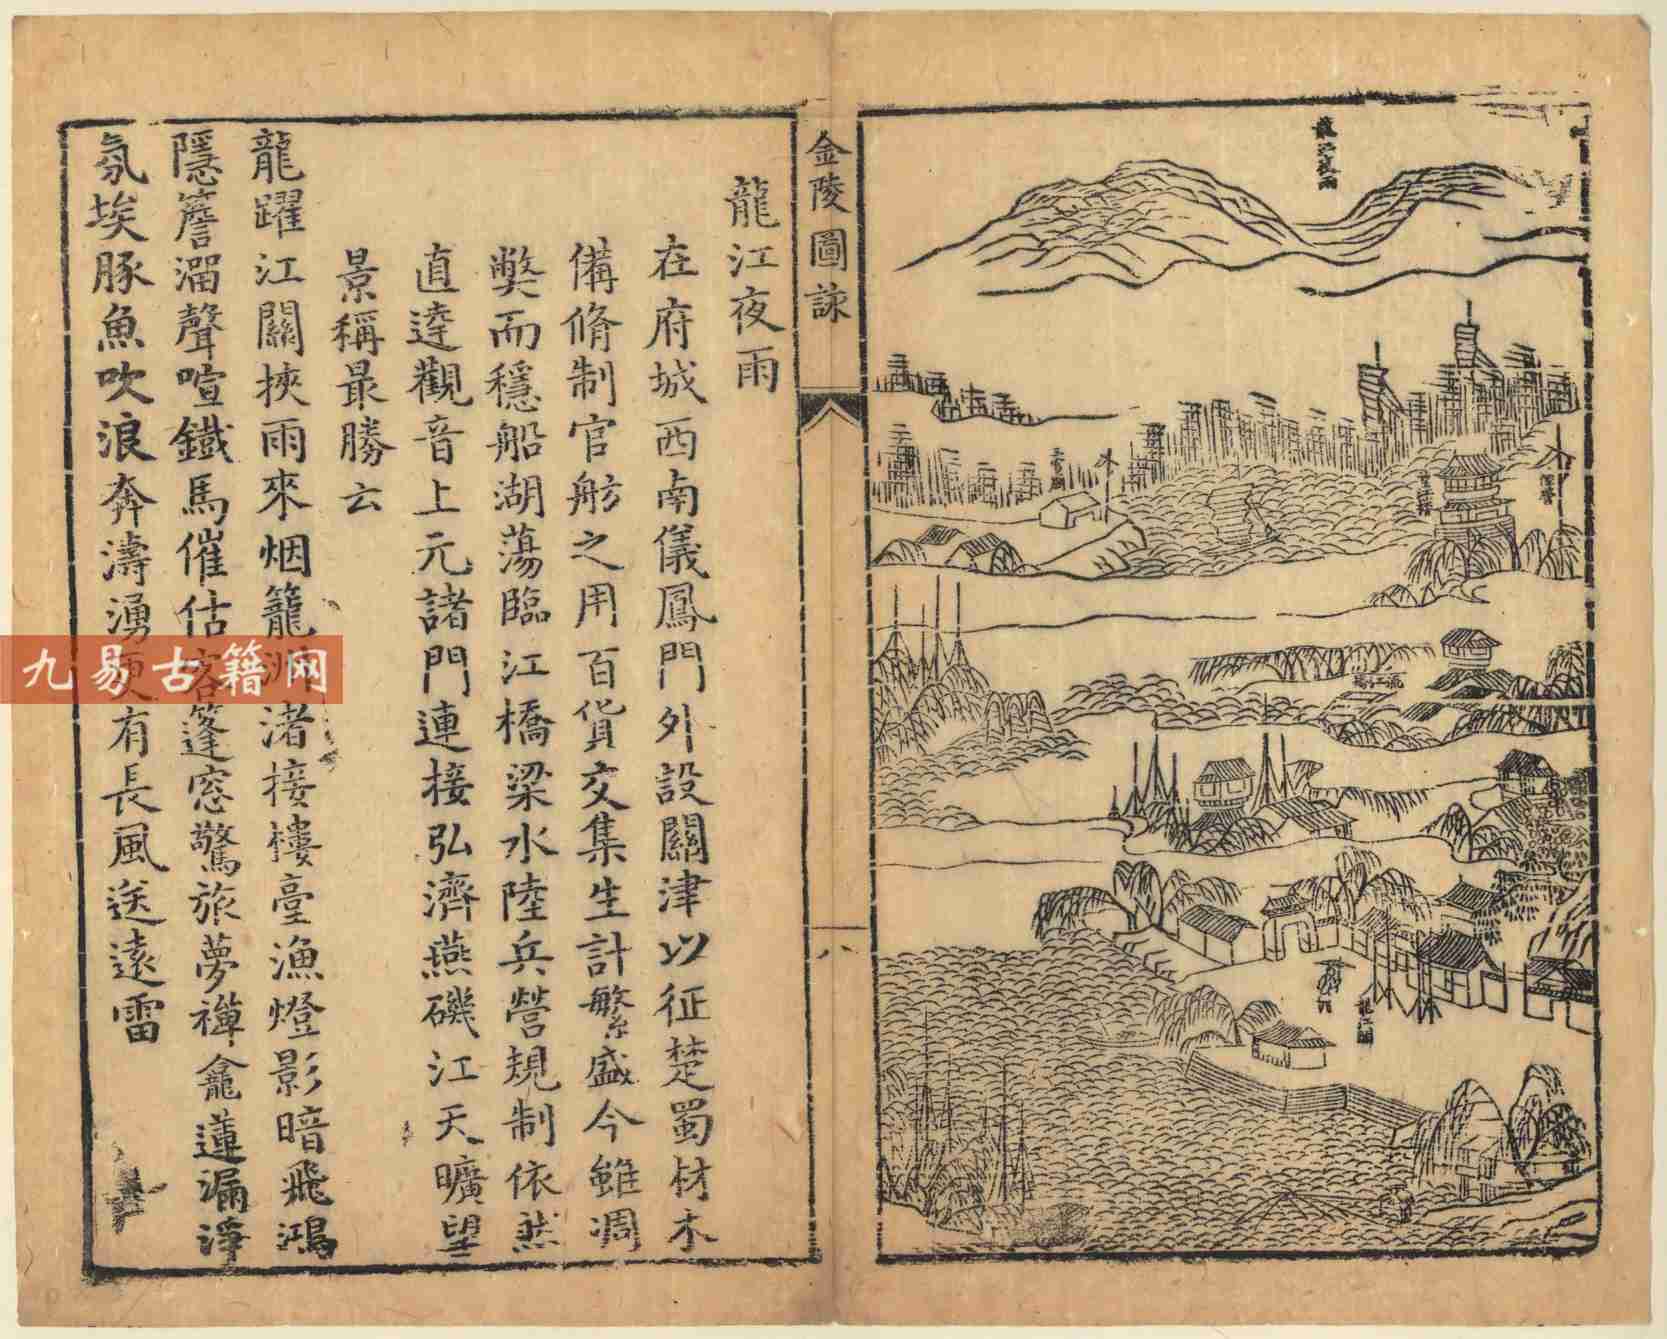 龍江夜雨
三官廟
流江觀
龍江關
金陵圖詠
八
龍江夜雨
在府城西南儀鳳門外設關津以征楚蜀材木
備脩制官舫之用百貨交集生計繁盛今雖凋
獘而穩船湖蕩臨江橋梁水陸兵營規制依然
直達觀音上元諸門連接弘濟燕磯江天曠望
景稱最勝云
龍躍江關挾雨來烟籠洲渚接樓臺漁燈影暗飛鴻
隱簷溜聲喧鐵馬催估客篷窓驚旅夢禪龕蓮漏淨
氛埃豚魚吹浪奔濤湧更有長風送遠雷
九易古籍网